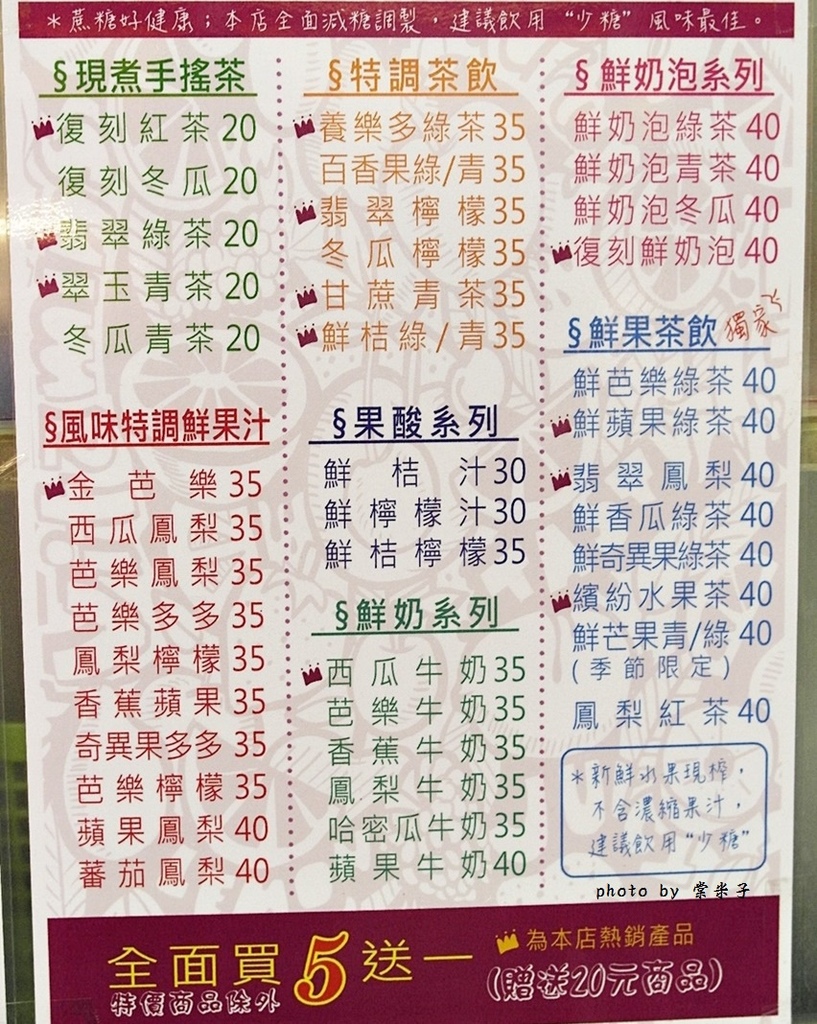 ＊蔗糖好健康；本店全面減糖調製，建議飲用“少糖”風味最佳。
§現煮手搖茶
復刻紅茶20
復刻冬瓜20
翡翠綠茶20
翠玉青茶20
冬瓜青茶20
§風味特調鮮果汁
金芭樂35
西瓜鳳梨35
芭樂鳳梨35
芭樂多多35
鳳梨檸檬35
香蕉蘋果35
奇異果多多35
芭樂檸檬35
蘋果鳳梨40
蕃茄鳳梨40
§特調茶飲
養樂多綠茶35
百香果綠/青35
翡翠檸檬35
冬瓜檸檬35
甘蔗青茶35
鮮桔綠/青35
§果酸系列
鮮桔汁30
鮮檸檬汁30
鮮桔檸檬35
§鮮奶系列
西瓜牛奶35
芭樂牛奶35
香蕉牛奶35
鳳梨牛奶35
哈密瓜牛奶35
蘋果牛奶40
§鮮奶泡系列
鮮奶泡綠茶40
鮮奶泡青茶40
鮮奶泡冬瓜40
復刻鮮奶泡40
§鮮果茶飲 獨家
鮮芭樂綠茶40
鮮蘋果綠茶40
翡翠鳳梨40
鮮香瓜綠茶40
鮮奇異果綠茶40
繽紛水果茶40
鮮芒果青/綠40
(季節限定)
鳳梨紅茶40
＊新鮮水果現榨，
不含濃縮果汁，
建議飲用“少糖”
photo by 棠米子
全面買5送一
特價商品除外
為本店熱銷產品
(贈送20元商品)